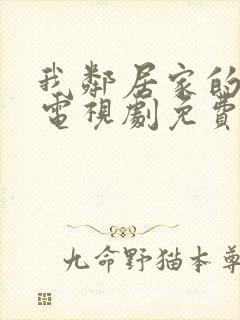 我鄰居家的
電視劇免費
九命野猫本尊